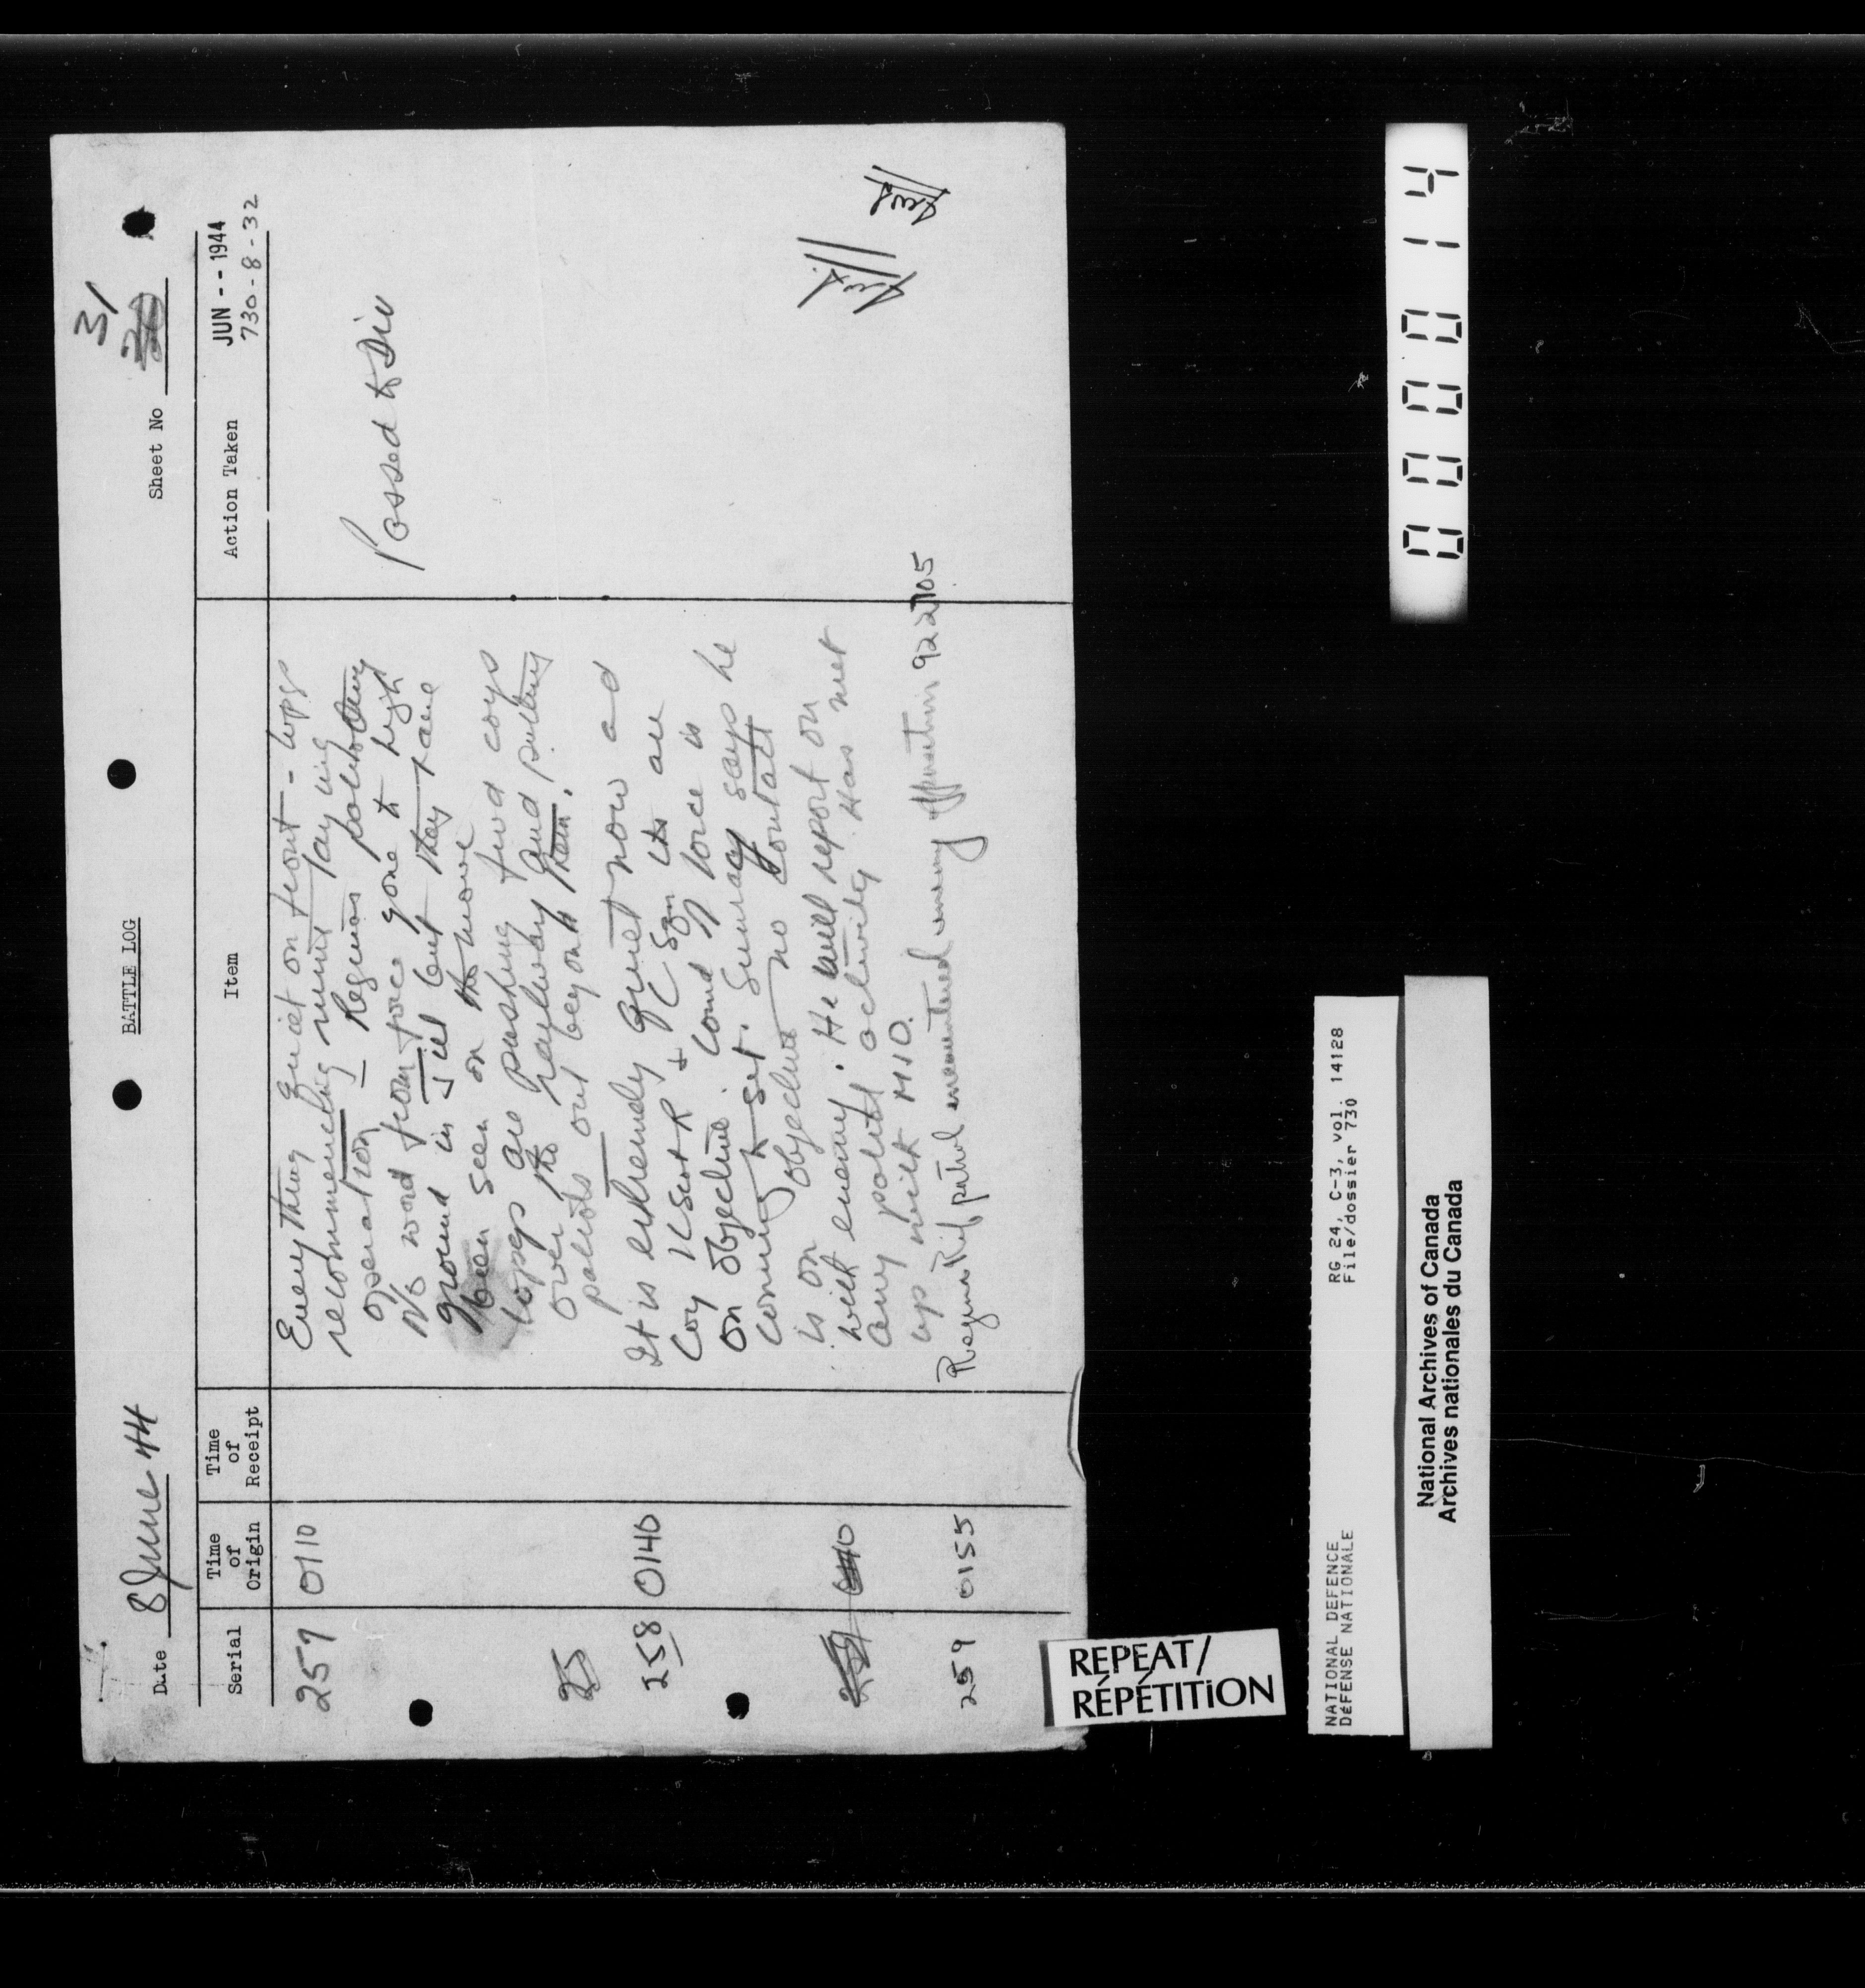 Date 8 June 44
BATTLE LOG
Sheet No 31
Serial
Time of Origin
Time of Receipt
Item
Action Taken
JUN -- 1944
730-8-32
257 0110
Everything quiet on front -
recommencing mine laying
operation - Reginas patrolling
No word from force gone to high
ground in but they have
been seen on the move
are pushing fwd coys
over the railway and putting
patrols out beyond them.
Passed to Div
25
258 0140
It is extremely quiet now and
Coy Scot R + C Sqn are
on objective. Comd of force is
coming to set. Sunray says he
is on objective no contact
with enemy. He will report on
any patrol activity. Has met
up with
259 0155
Regina Rif patrol encountered enemy opposition 922705
REPEAT/
RÉPÉTITiON
NATIONAL DEFENCE
DÉFENSE NATIONALE
RG 24, C-3, vol. 14128
File/dossier 730
National Archives of Canada
Archives nationales du Canada
000014